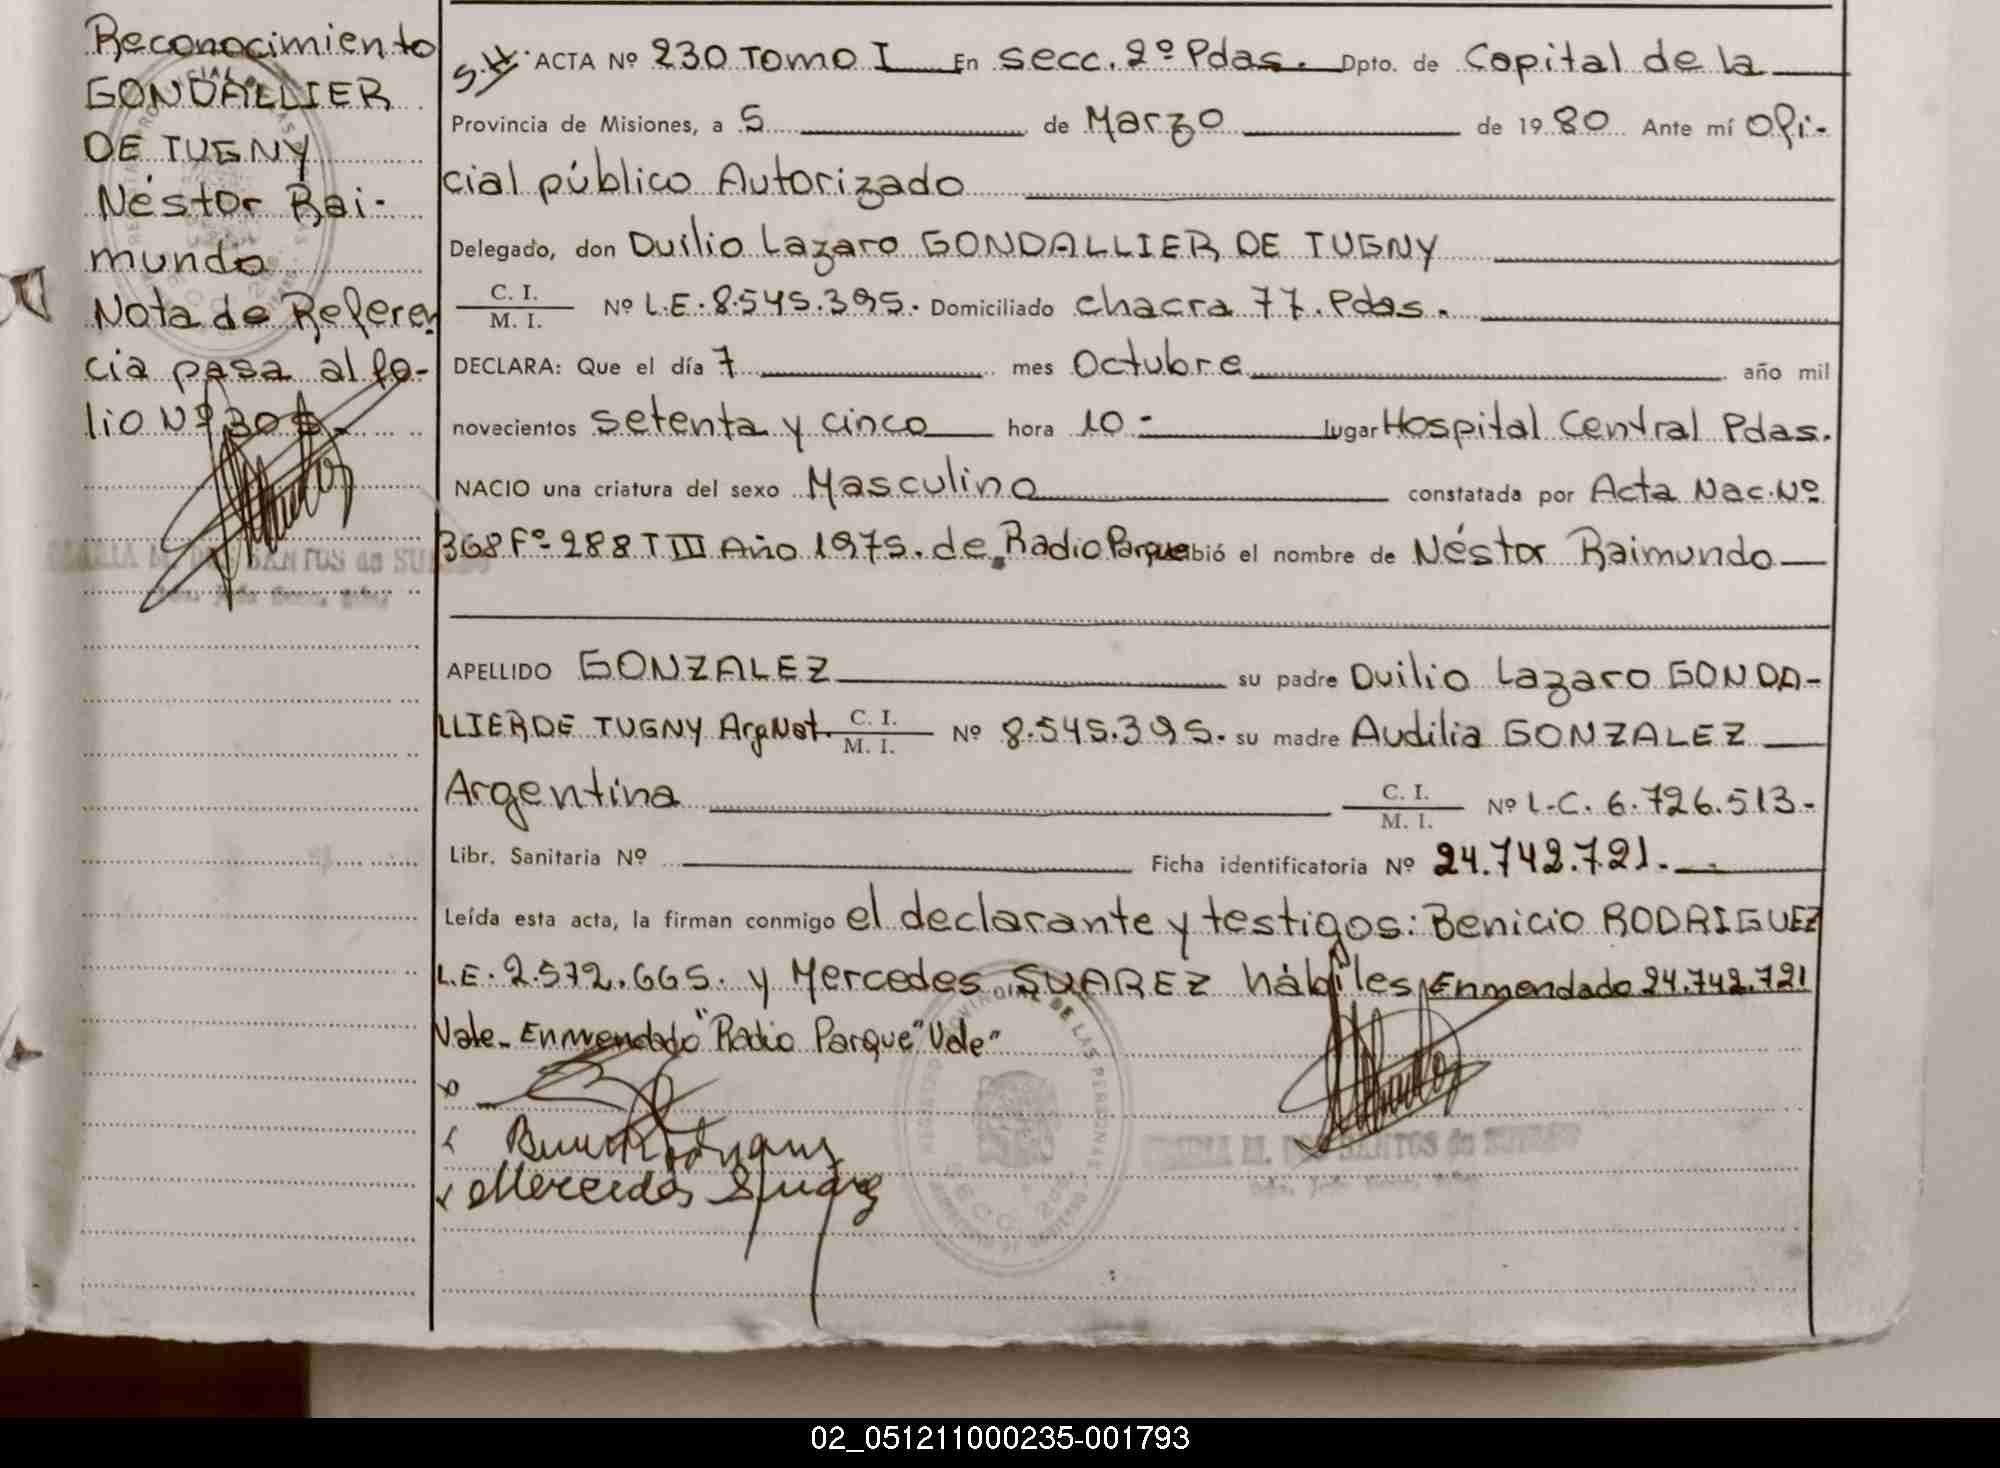 Reconocimiento
GONDALLIER
DE TUGNY
Néstor Rai-
mundo
Nota de Referen
cia pasa al fo-
lio Nº 30
S.H. ACTA Nº 230 Tomo I En secc. 2º Pdas. Dpto. de Capital de la
Provincia de Misiones, a 5 de Marzo de 1980 Ante mí Ofi-
cial público Autorizado
Delegado, don Duilio Lazaro GONDALLIER DE TUGNY
C. I.
M. I. Nº L.E. 8.545.395. Domiciliado chacra 77. Pdas.
DECLARA: Que el día 7 mes Octubre año mil
novecientos setenta y cinco hora 10- lugar Hospital Central Pdas.
NACIO una criatura del sexo Masculino constatada por Acta Nac. Nº
368 Fº 288 T III Año 1975. de Radio Parque bió el nombre de Néstor Raimundo
APELLIDO GONZALEZ su padre Duilio Lazaro GONDA-
LLIER DE TUGNY Arg Nat. C. I.
M. I. Nº 8.545.395. su madre Audilia GONZALEZ
Argentina C. I.
M. I. Nº L.C. 6.726.513-
Libr. Sanitaria Nº Ficha identificatoria Nº 24.742.721.-
Leída esta acta, la firman conmigo el declarante y testigos: Benicio RODRIGUEZ
L.E. 2.572.665. y Mercedes SUAREZ hábiles Enmendado 24.742.721
Vale- Enmendado "Radio Parque" Vale"
Mercedes Suárez
MARIA M. DOS SANTOS de
02_051211000235-001793